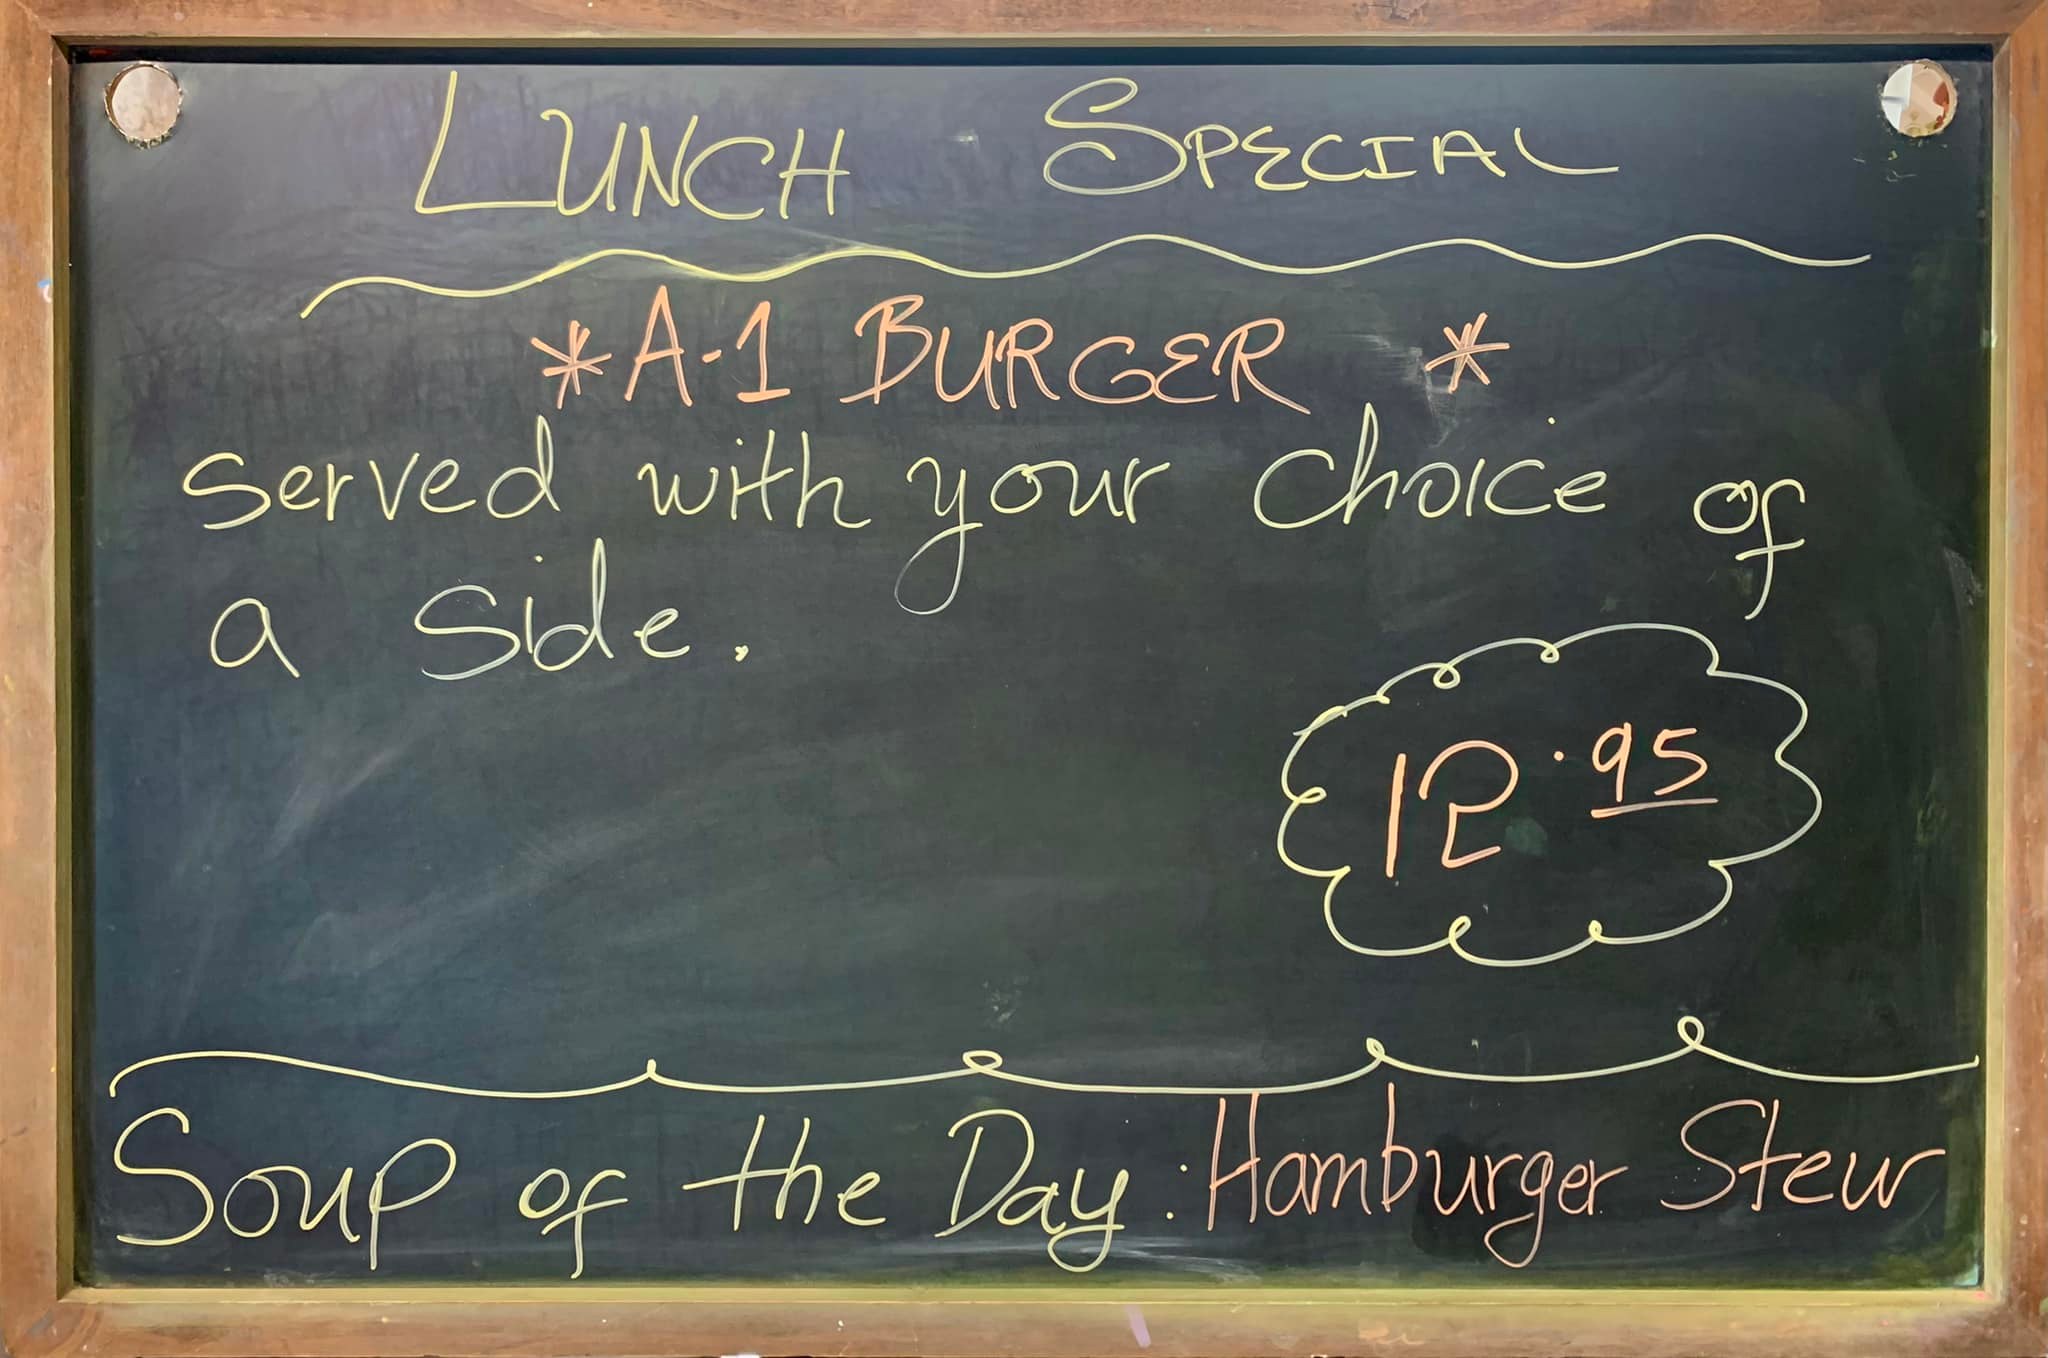 LUNCH SPECIAL
*A-1 BURGER *
served with your choice of
a side.
12.95
Soup of the Day: Hamburger Stew